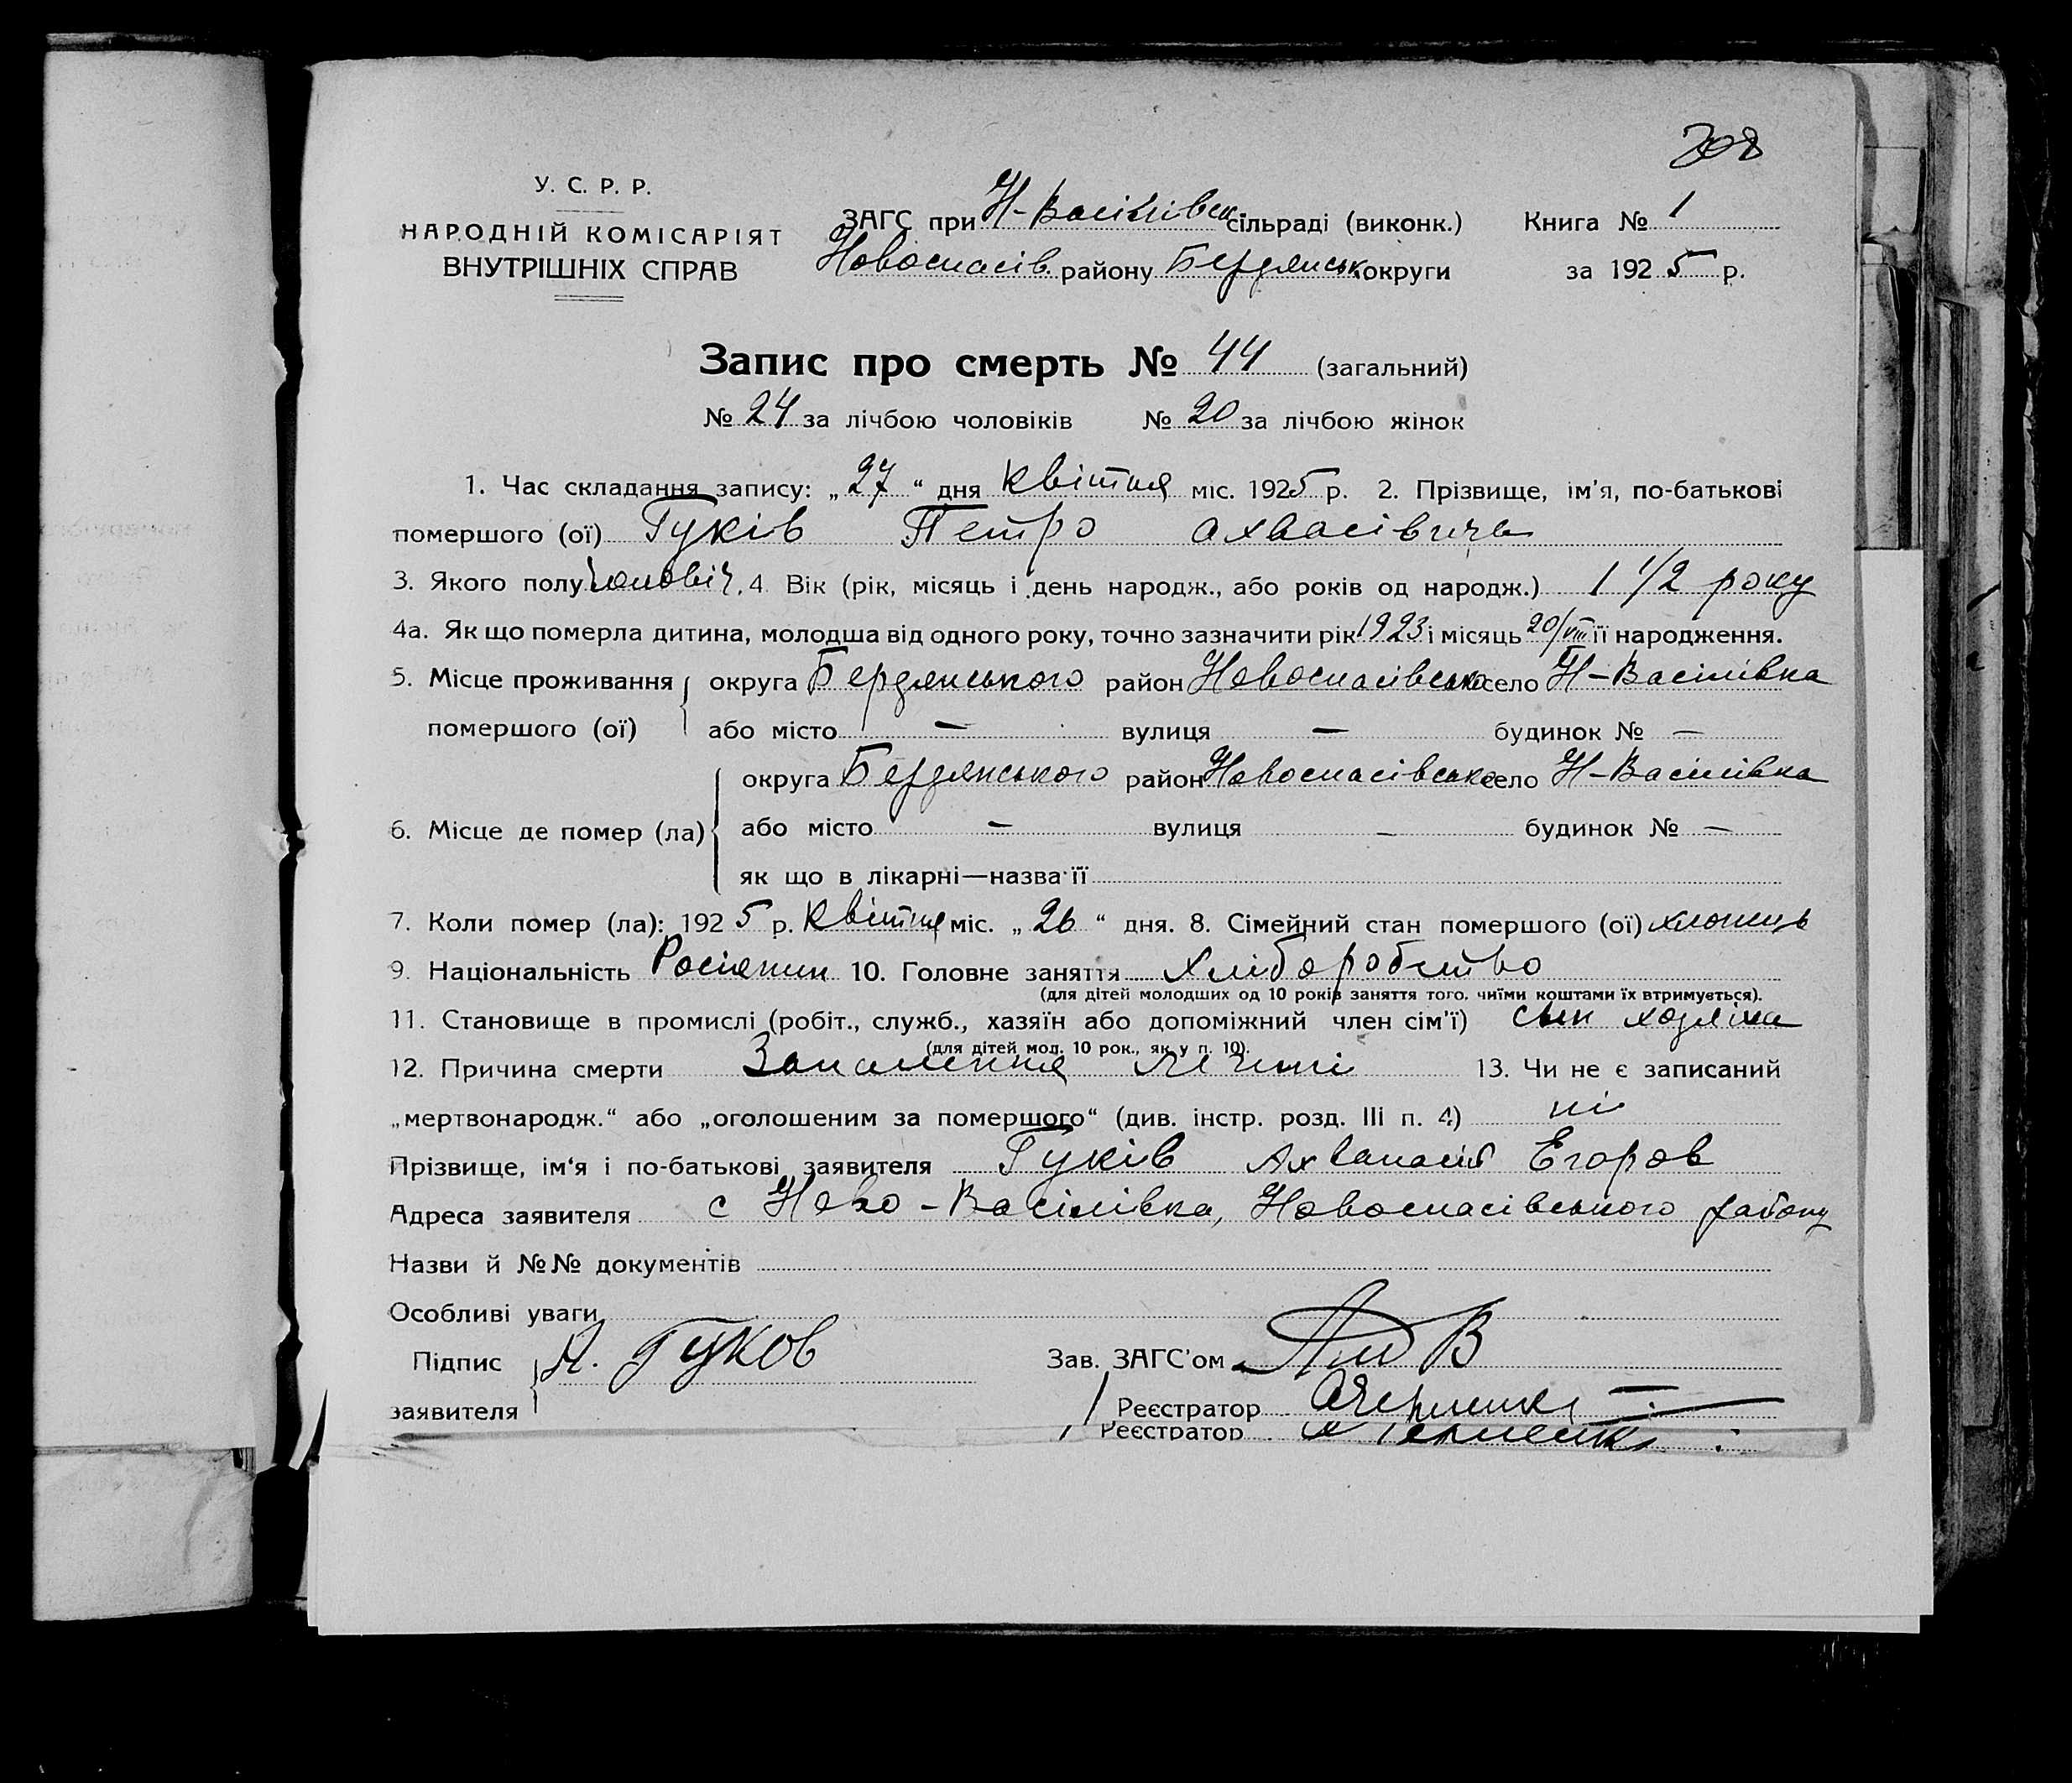 У. С. Р. Р.
НАРОДНІЙ КОМІСАРІЯТ
ВНУТРІШНІХ СПРАВ
ЗАГС при Н-Васілівск сільраді (виконк.) Книга № 1
Новоспасів. району Бердянськ округи за 1925 р.
Запис про смерть № 44 (загальний)
№ 24 за лічбою чоловіків № 20 за лічбою жінок
1. Час складання запису: „27“ дня Квітня міс. 1925 р. 2. Прізвище, ім'я, по-батькові
помершого (ої) Гуків Петро Ахвасівичь
3. Якого полу Чоловіч. 4. Вік (рік, місяць і день народж., або років од народж.) 1 1/2 року
4а. Як що померла дитина, молодша від одного року, точно зазначити рік 1923 і місяць 20/VIII її народження.
5. Місце проживання округа Бердянського район Новоспасівсько село Н-Васілівка
помершого (ої) або місто — вулиця — будинок № —
округа Бердянського район Новоспасівсько село Н-Васілівка
6. Місце де помер (ла) або місто — вулиця — будинок № —
як що в лікарні—назва її
7. Коли помер (ла): 1925 р. Квітня міс. „26“ дня. 8. Сімейний стан помершого (ої) хлопець
9. Національність Росіянин 10. Головне заняття Хліборобство
(для дітей молодших од 10 років заняття того, чиїми коштами їх втримується).
11. Становище в промислі (робіт., служб., хазяїн або допоміжний член сім'ї) сын хозяіна
(для дітей мол. 10 рок., як у п. 10).
12. Причина смерти Запалення 13. Чи не є записаний
„мертвонародж.“ або „оголошеним за помершого“ (див. інстр. розд. III п. 4) ні
Прізвище, ім'я і по-батькові заявителя Гуків Ахванасій Егоров
Адреса заявителя с Ново-Васілівка, Новоспасівського району
Назви й №№ документів
Особливі уваги
Підпис А. Гуков Зав. ЗАГС'ом
заявителя Реєстратор
Реєстратор